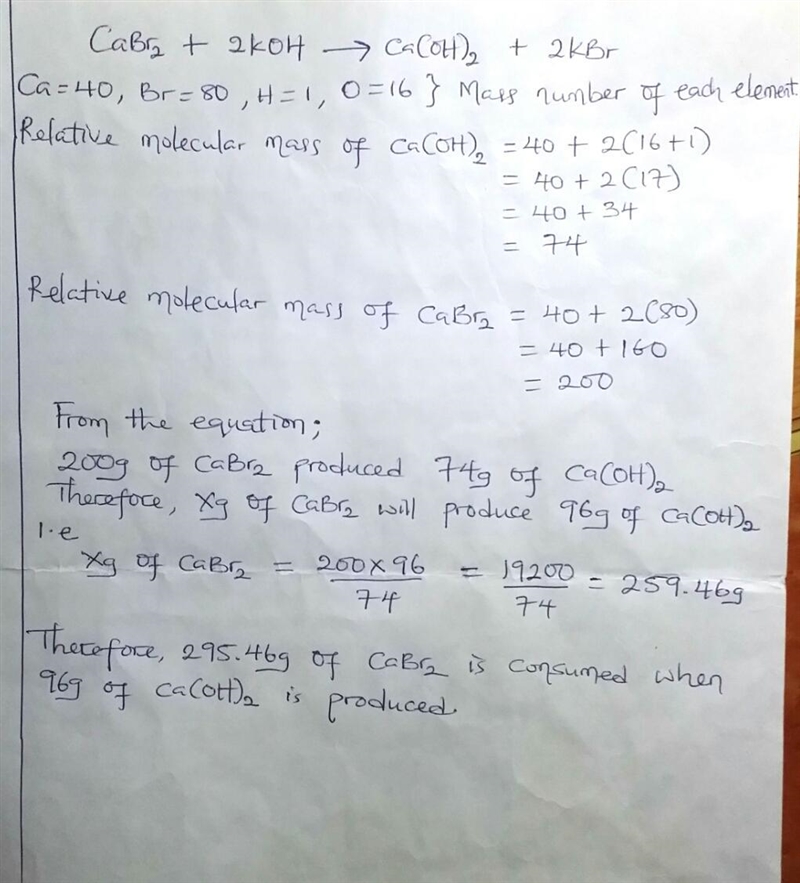 CaBr₂ + 2KOH → Ca(OH)₂ + 2KBr
Ca = 40, Br = 80, H = 1, O = 16 } Mass number of each element.
Relative molecular mass of Ca(OH)₂ = 40 + 2(16+1)
= 40 + 2(17)
= 40 + 34
= 74
Relative molecular mass of CaBr₂ = 40 + 2(80)
= 40 + 160
= 200
From the equation;
200g of CaBr₂ produced 74g of Ca(OH)₂
Therefore, xg of CaBr₂ will produce 96g of Ca(OH)₂
I.e
xg of CaBr₂ = 200 x 96 / 74 = 19200 / 74 = 259.46g
Therefore, 295.46g of CaBr₂ is consumed when
96g of Ca(OH)₂ is produced.